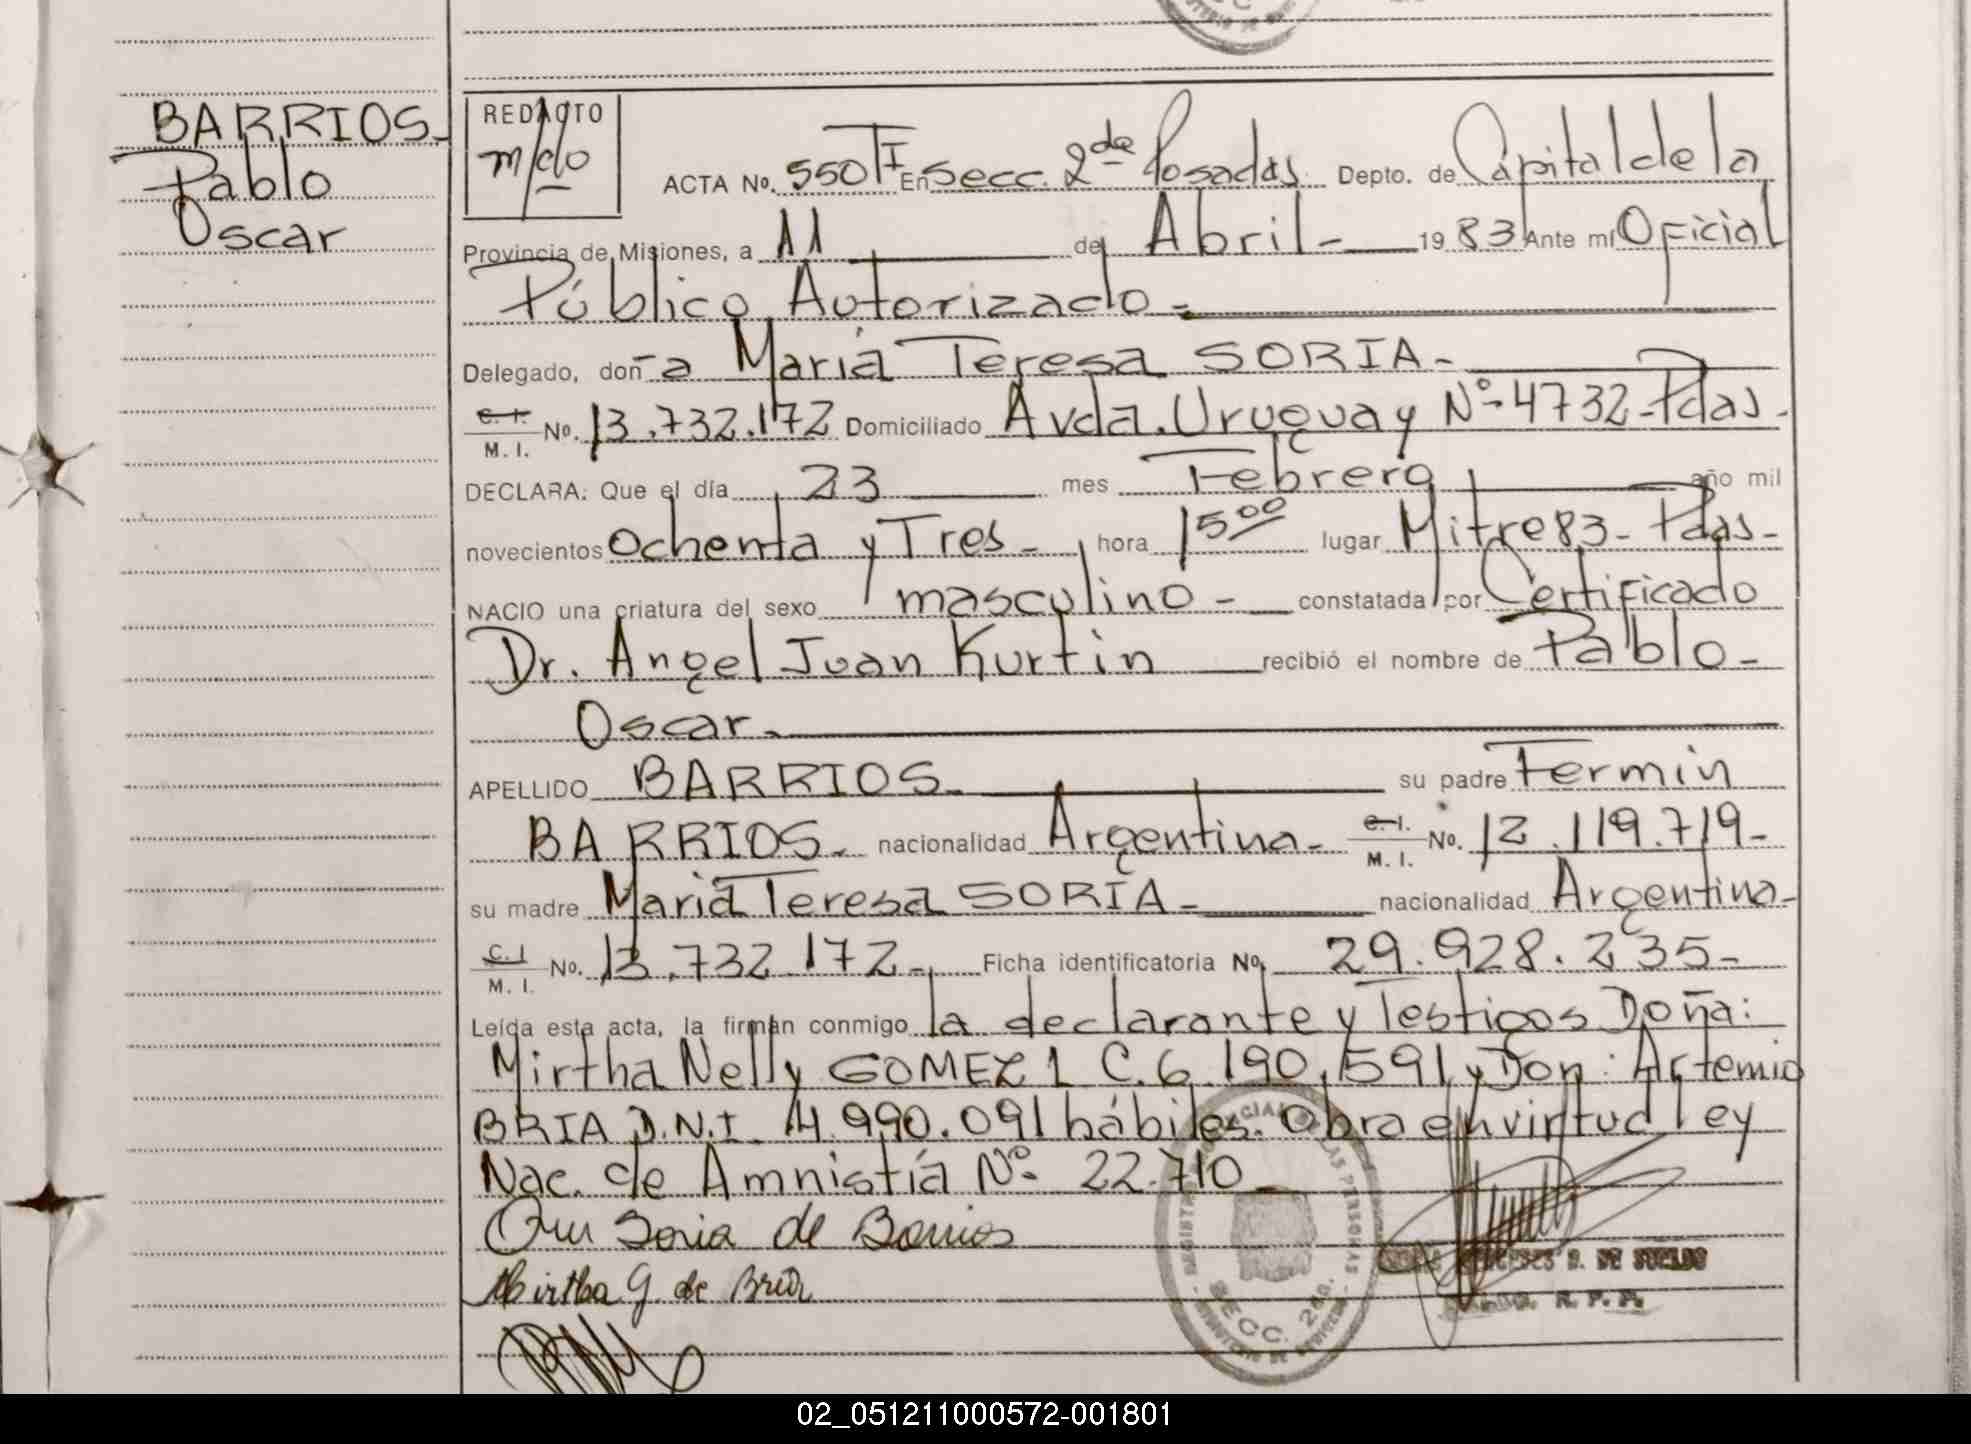 BARRIOS-
Pablo
Oscar
REDACTO
m/do
ACTA No. 550 TI En Secc. 2da Posadas Depto. de Capital de la
Provincia de Misiones, a 11 de Abril - 1983 Ante mí Oficial
Público Autorizado -
Delegado, doña María Teresa SORIA -
C. I. / M. I. No. 13.732.172 Domiciliado Avda. Uruguay Nº 4732 - Pdas -
DECLARA: Que el día 23 mes Febrero año mil
novecientos ochenta y Tres - hora 15 00 lugar Mitre 83 - Pdas -
NACIO una criatura del sexo masculino - constatada por Certificado
Dr. Angel Juan Kurtin recibió el nombre de Pablo -
Oscar -
APELLIDO BARRIOS - su padre Fermin
BARRIOS - nacionalidad Argentina - C. I. / M. I. No. 12.119.719 -
su madre María Teresa SORIA - nacionalidad Argentina -
C. I / M. I. No. 13.732.172 - Ficha identificatoria No 29.928.235 -
Leída esta acta, la firman conmigo la declarante y Testigos Doña:
Mirtha Nelly GOMEZ L C. 6.190.591 y Don: Artemio
BRIA D.N.I. 4.990.091 hábiles. Obra en virtud Ley
Nac. de Amnistía Nº 22.710 -
Soria de Barrios
Mirtha G. de Bria
DE SUELDO
SECC. 2da.
02_051211000572-001801